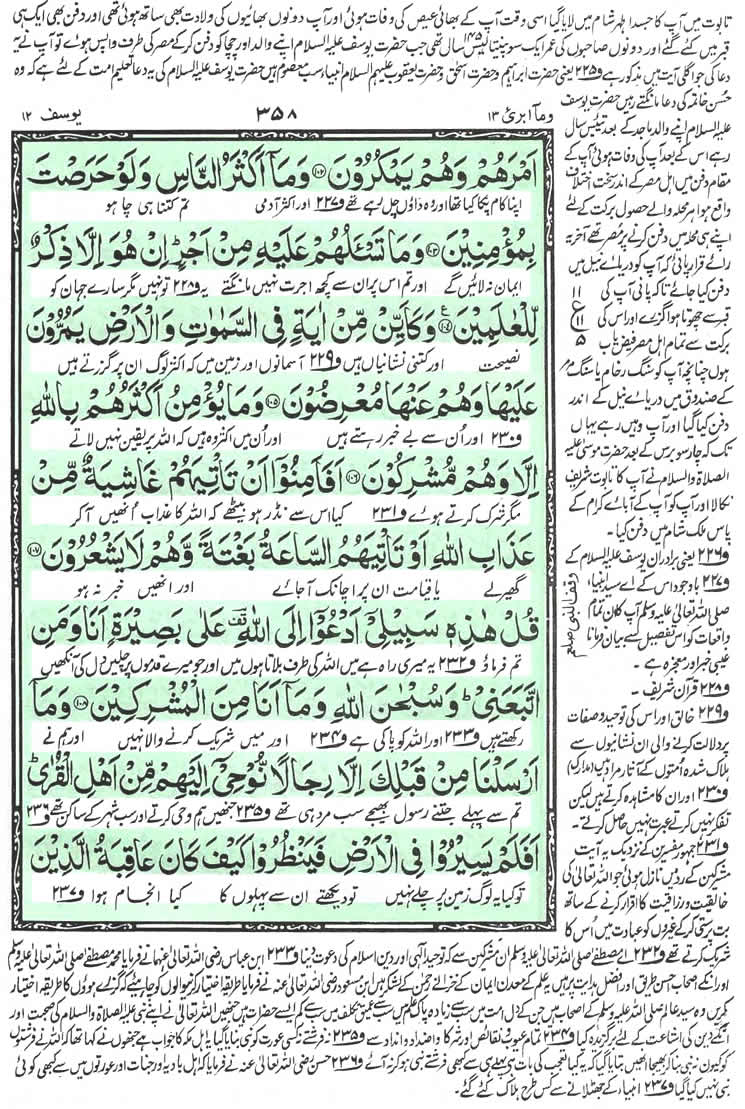 تابوت میں آپ کا جسد اطہر شام میں لایا گیا اسی وقت آپ کے بھائی عیص کی وفات ہوئی اور آپ دونوں بھائیوں کی ولادت بھی ساتھ ہوئی تھی اور دفن بھی ایک ہی
قبر میں کئے گئے اور دونوں صاحبوں کی عمر ایک سو پینتالیس ۱۴۵ سال تھی جب حضرت یوسف علیہ السلام اپنے والد اور چچا کو دفن کر کے مصر کی طرف واپس ہوئے تو آپ نے یہ
دعا کی جو اگلی آیت میں مذکور ہے و۲۲۵ یعنی حضرت ابراہیم و حضرت اسحٰق و حضرت یعقوب علیہم السلام انبیا سب معصوم ہیں حضرت یوسف علیہ السلام کی یہ دعا تعلیم امت کے لئے ہے کہ وہ
حسن خاتمہ کی دعا مانگتے رہیں حضرت یوسف
وما ابرئ ۱۳
۳۵۸
یوسف ۱۲
اَمْرَهُمْ وَهُمْ يَمْكُرُوْنَ ۝۱۰۲ وَمَآ اَكْثَرُ النَّاسِ وَلَوْ حَرَصْتَ
اپنا کام پکا کیا تھا اور وہ داؤں چل رہے تھے و۲۲۷ اور اکثر آدمی تم کتنا ہی چاہو
بِمُؤْمِنِيْنَ ۝۱۰۳ وَمَا تَسْـَٔلُهُمْ عَلَيْهِ مِنْ اَجْرٍ ؕ اِنْ هُوَ اِلَّا ذِكْرٌ
ایمان نہ لائیں گے اور تم اس پر ان سے کچھ اجرت نہیں مانگتے یہ و۲۲۸ تو نہیں مگر سارے جہان کو
لِّلْعٰلَمِيْنَ ۝۱۰۴ وَكَاَيِّنْ مِّنْ اٰيَةٍ فِى السَّمٰوٰتِ وَالْاَرْضِ يَمُرُّوْنَ
نصیحت اور کتنی نشانیاں ہیں و۲۲۹ آسمانوں اور زمین میں کہ اکثر لوگ ان پر گزرتے ہیں
عَلَيْهَا وَهُمْ عَنْهَا مُعْرِضُوْنَ ۝۱۰۵ وَمَا يُؤْمِنُ اَكْثَرُهُمْ بِاللّٰهِ
و۲۳۰ اور ان سے بے خبر رہتے ہیں اور ان میں اکثر وہ ہیں کہ اللہ پر یقین نہیں لاتے
اِلَّا وَهُمْ مُّشْرِكُوْنَ ۝۱۰۶ اَفَاَمِنُوْٓا اَنْ تَاْتِيَهُمْ غَاشِيَةٌ مِّنْ
مگر شرک کرتے ہوئے و۲۳۱ کیا اس سے نڈر ہو بیٹھے کہ اللہ کا عذاب انھیں آ کر
عَذَابِ اللّٰهِ اَوْ تَاْتِيَهُمُ السَّاعَةُ بَغْتَةً وَّهُمْ لَا يَشْعُرُوْنَ ۝۱۰۷
گھیر لے یا قیامت ان پر اچانک آ جائے اور انھیں خبر نہ ہو
قُلْ هٰذِهٖ سَبِيْلِىْٓ اَدْعُوْٓا اِلَى اللّٰهِ عَلٰى بَصِيْرَةٍ اَنَا وَمَنِ
تم فرماؤ و۲۳۲ یہ میری راہ ہے میں اللہ کی طرف بلاتا ہوں میں اور جو میرے قدموں پر چلیں دل کی آنکھیں
اتَّبَعَنِىْ ؕ وَسُبْحٰنَ اللّٰهِ وَمَآ اَنَا مِنَ الْمُشْرِكِيْنَ ۝۱۰۸ وَمَآ
رکھتے ہیں و۲۳۳ اور اللہ کو پاکی ہے و۲۳۴ اور میں شریک کرنے والا نہیں اور ہم نے
اَرْسَلْنَا مِنْ قَبْلِكَ اِلَّا رِجَالًا نُّوْحِىْٓ اِلَيْهِمْ مِّنْ اَهْلِ الْقُرٰى ؕ
تم سے پہلے جتنے رسول بھیجے سب مرد ہی تھے و۲۳۵ جنھیں ہم وحی کرتے اور سب شہر کے ساکن تھے و۲۳۶
اَفَلَمْ يَسِيْرُوْا فِى الْاَرْضِ فَيَنْظُرُوْا كَيْفَ كَانَ عَاقِبَةُ الَّذِيْنَ
تو کیا یہ لوگ زمین پر چلے نہیں تو دیکھتے ان سے پہلوں کا کیا انجام ہوا و۲۳۷
علیہ السلام اپنے والد ماجد کے بعد تئیس سال
رہے اس کے بعد آپ کی وفات ہوئی آپ کے
مقام دفن میں اہل مصر کے اندر سخت اختلاف
واقع ہوا ہر محلہ والے حصول برکت کے لئے
اپنے ہی محلہ میں دفن کرنے پر مصر تھے آخر یہ
رائے قرار پائی کہ آپ کو دریائے نیل میں
دفن کیا جائے تاکہ پانی آپ کی
قبر سے چھوتا ہوا گزرے اور اس کی
برکت سے تمام اہل مصر فیض یاب
ہوں چنانچہ آپ کو سنگ رخام یا سنگ مرمر
کے صندوق میں دریائے نیل کے اندر
دفن کیا گیا اور آپ وہیں رہے یہاں
تک کہ چار سو برس کے بعد حضرت موسیٰ علیہ
الصلاۃ والسلام نے آپ کا تابوت شریف
نکالا اور آپ کو آپ کے آبائے کرام کے
پاس ملک شام میں دفن کیا۔
و۲۲۶ یعنی برادران یوسف علیہ السلام کے
و۲۲۷ باوجود اس کے اے سید انبیاء
صلی اللہ تعالیٰ علیہ وسلم آپ کا ان تمام
واقعات کو اس تفصیل سے بیان فرمانا
غیبی خبر اور معجزہ ہے۔
و۲۲۸ قرآن شریف۔
و۲۲۹ خالق اور اس کی توحید و صفات
پر دلالت کرنے والی ان نشانیوں سے
ہلاک شدہ امتوں کے آثار مراد ہیں (مدارک)
و۲۳۰ اور ان کا مشاہدہ کرتے ہیں لیکن
تفکر نہیں کرتے عبرت نہیں حاصل کرتے۔
و۲۳۱ جمہور مفسرین کے نزدیک یہ آیت
مشرکین کے رد میں نازل ہوئی جو اللہ تعالیٰ کی
خالقیت و رزاقیت کا اقرار کرنے کے ساتھ
بت پرستی کر کے غیروں کو عبادت میں اُس کا
۱۱
ع
۱۱
۵
وقف النبی صلعم
شریک کرتے تھے و۲۳۲ اے مصطفےٰ صلی اللہ تعالیٰ علیہ وسلم ان مشرکین سے کہ توحید الٰہی اور دین اسلام کی دعوت دینا و۲۳۳ ابن عباس رضی اللہ تعالیٰ عنہما نے فرمایا محمد مصطفےٰ صلی اللہ تعالیٰ علیہ وسلم
اور انکے اصحاب احسن طریق اور افضل ہدایت پر ہیں یہ علم کے معدن ایمان کے خزانے رحمٰن کے لشکر ہیں ابن مسعود رضی اللہ تعالیٰ عنہ نے فرمایا طریقہ اختیار کرنیوالوں کو چاہیئے کہ گزرے ہوؤں کا طریقہ اختیار
کریں وہ سید عالم صلی اللہ علیہ وسلم کے اصحاب ہیں جن کے دل امت میں سب سے زیادہ پاک علم میں سب سے عمیق تکلف میں سب سے کم ایسے حضرات ہیں جنھیں اللہ تعالیٰ نے اپنے نبی علیہ الصلاۃ والسلام کی صحبت اور
انکے دین کی اشاعت کے لئے برگزیدہ کیا و۲۳۴ تمام عیوب و نقائص اور شرکا و اضداد و انداد سے و۲۳۵ نہ فرشتے نہ کسی عورت کو نبی بنایا گیا یہ اہل مکہ کا جواب ہے جنھوں نے کہا تھا کہ اللہ نے فرشتوں
کو کیوں نہ نبی بنا کر بھیجا انھیں بتایا گیا کہ یہ کیا تعجب کی بات ہے پہلے ہی سے کبھی فرشتے نبی ہو کر نہ آئے و۲۳۶ حسن رضی اللہ تعالیٰ عنہ نے فرمایا کہ اہل بادیہ اور جنات اور عورتوں میں سے کبھی کوئی
نبی نہیں کیا گیا و۲۳۷ انبیاء کے جھٹلانے سے کس طرح ہلاک کئے گئے۔